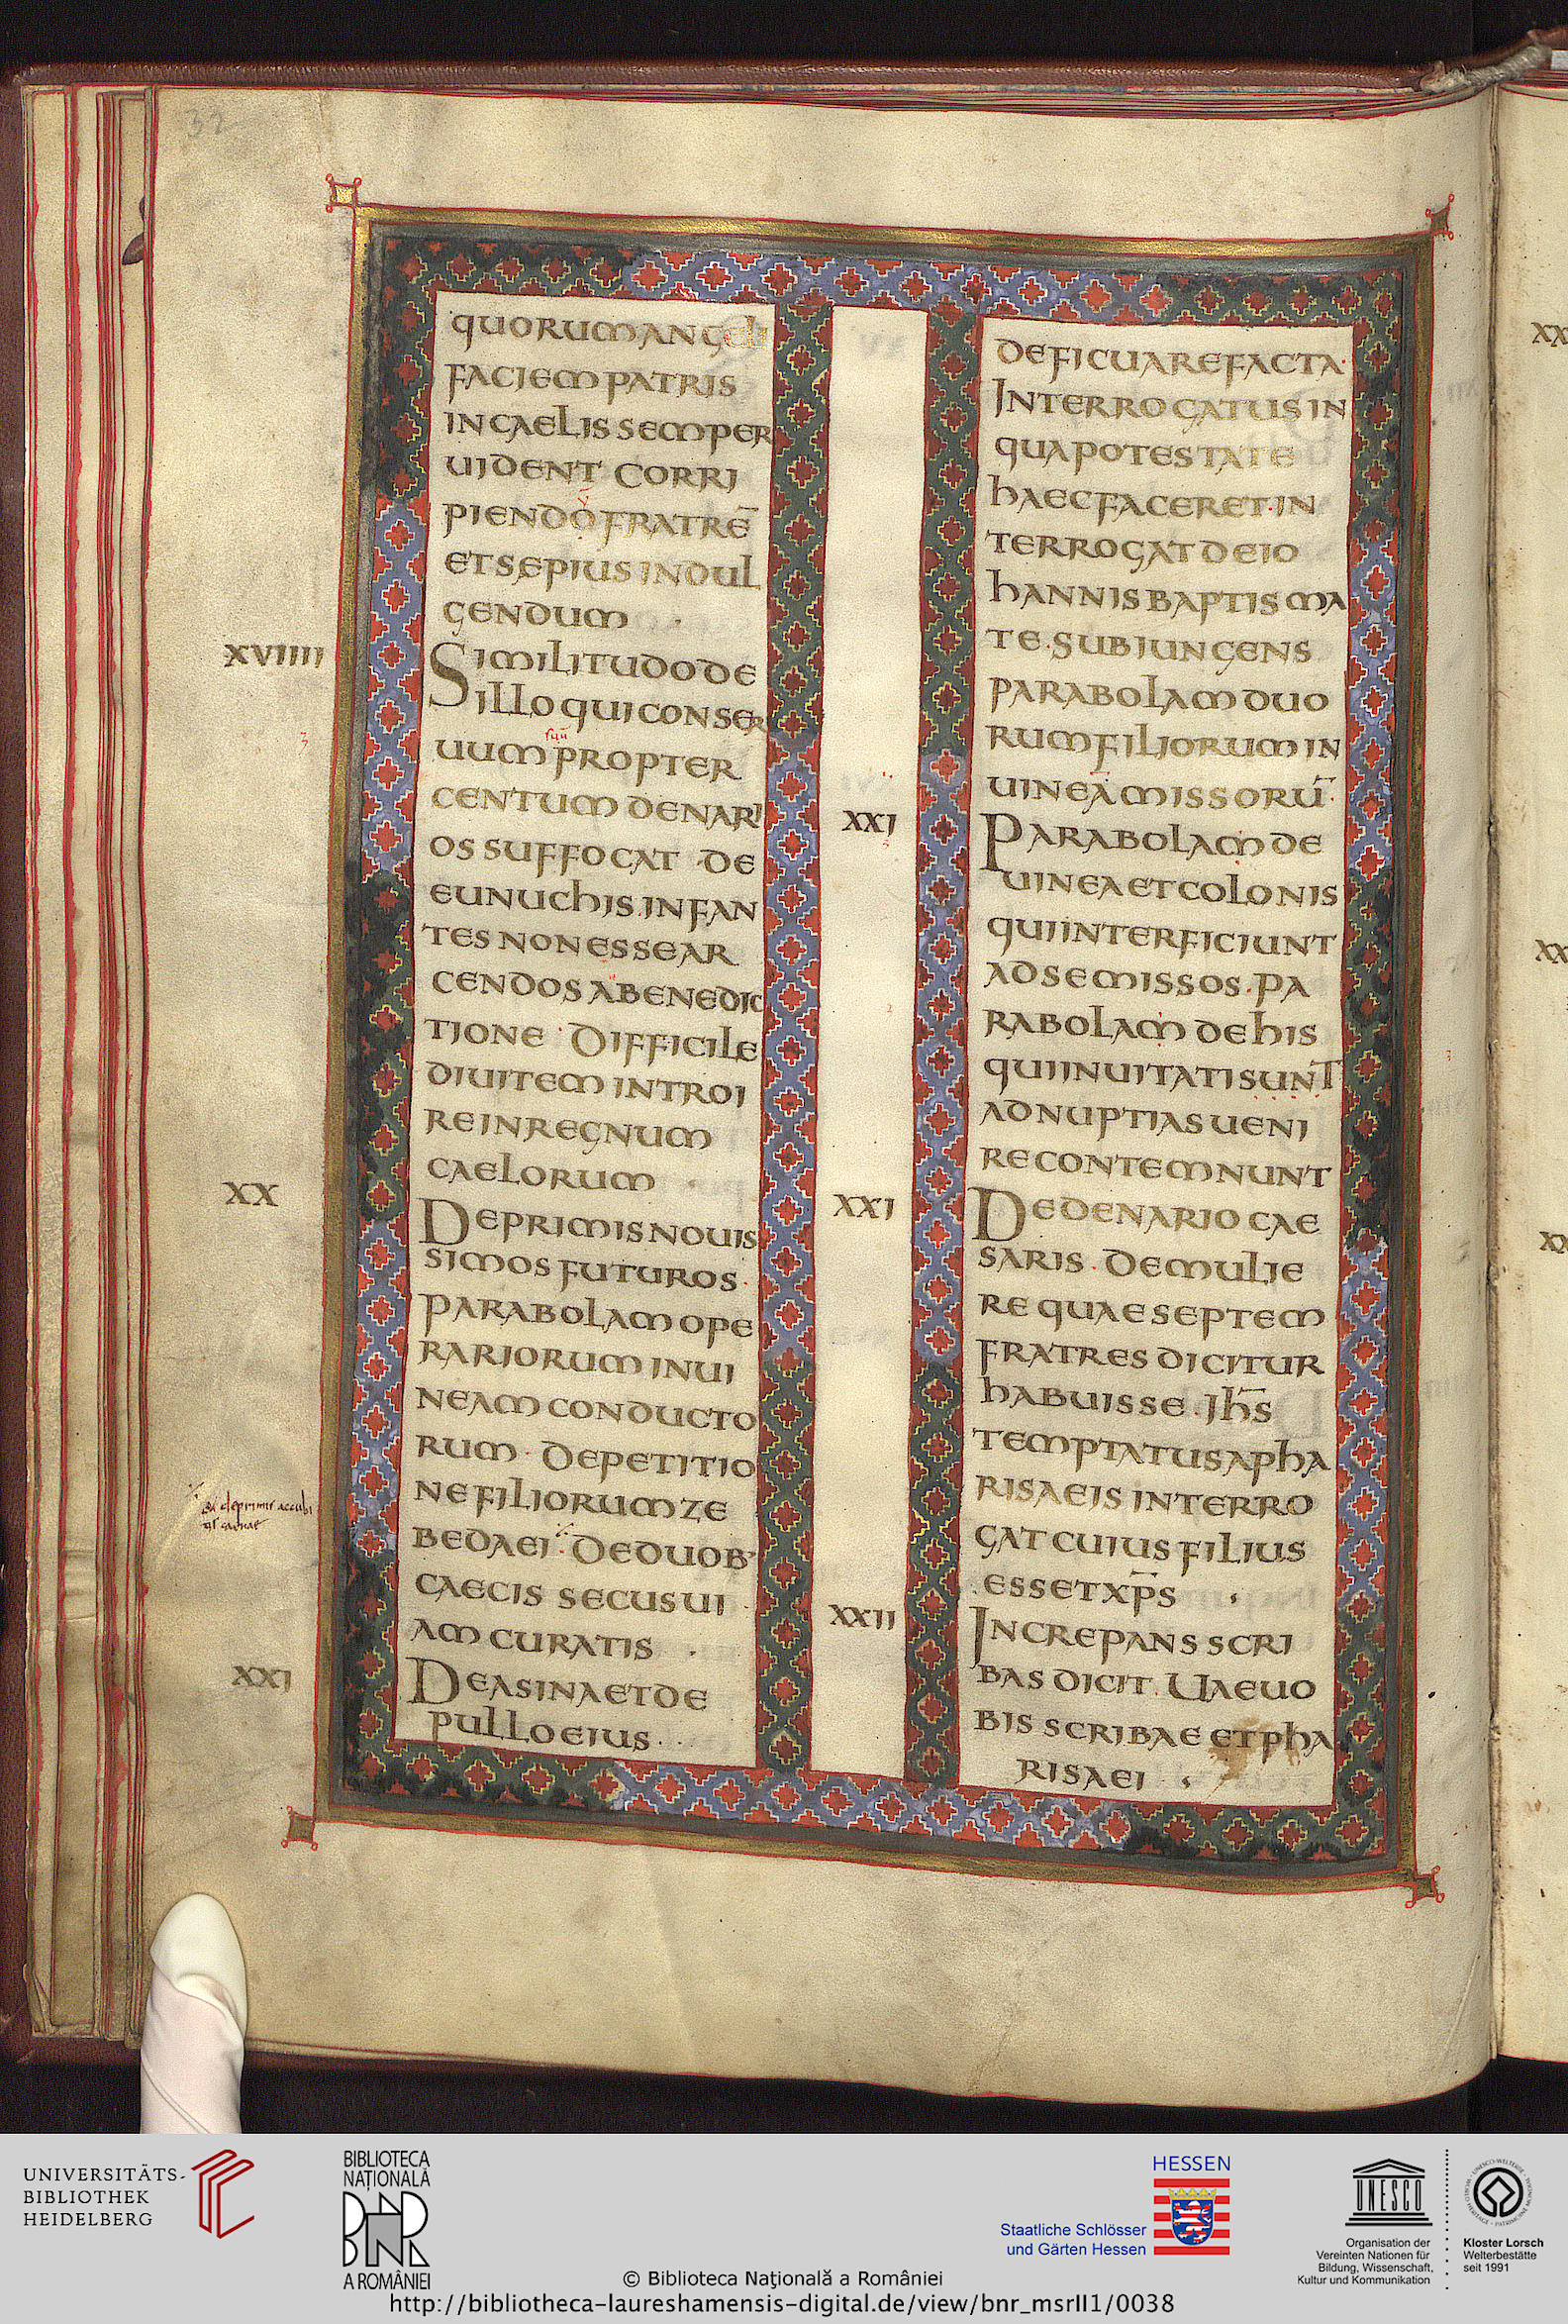 32
QUORUM ANGELI
FACIEM PATRIS
IN CAELIS SEMPER
UIDENT CORRI
PIENDO FRATRE̅
ET SEPIUS INDUL
GENDUM
XVIIII
SIMILITUDO DE
ILLO QUI CONSER
UUM PROPTER
CENTUM DENARI
OS SUFFOCAT · DE
EUNUCHIS. INFAN
TES NON ESSE AR
CENDOS A BENEDIC
TIONE · DIFFICILE
DIUITEM INTROI
RE IN REGNUM
CAELORUM
XX
DE PRIMIS NOUIS
SIMOS FUTUROS·
PARABOLAM OPE
RARIORUM IN UI
NEAM CONDUCTO
RUM · DE PETITIO
NE FILIORUM ZE
BEDAEI · DE DUOB·
CAECIS SECUS UI
AM CURATIS ·
XXI
DE ASINA ET DE
PULLO EIUS · ·
DE FICU AREFACTA·
INTERROGATUS IN
QUA POTESTATE
HAEC FACERET· IN
TERROGAT DE IO
HANNIS BAPTISMA
TE· SUBIUNGENS
PARABOLAM DUO
RUM FILIORUM IN
UINEA̅ MISSORU̅·
XXI
PARABOLAM DE
UINEA ET COLONIS
QUI INTERFICIUNT
AD SE MISSOS· PA
RABOLAM DE HIS
QUI INUITATI SUNT
AD NUPTIAS UENI
RE CONTEMNUNT
XXI
DE DENARIO CAE
SARIS · DE MULIE
RE QUAE SEPTEM
FRATRES DICITUR
HABUISSE · IH̅S
TEMPTATUS A PHA
RISAEIS INTERRO
GAT CUIUS FILIUS
ESSET XP̅S ·
XXII
INCREPANS SCRI
BAS DICIT· UAE UO
BIS SCRIBAE ET PHA
RISAEI ·
UNIVERSITÄTS-
BIBLIOTHEK
HEIDELBERG
BIBLIOTECA
NAȚIONALĂ
BNR
A ROMÂNIEI
HESSEN
Staatliche Schlösser
und Gärten Hessen
UNESCO
Organisation der
Vereinten Nationen für
Bildung, Wissenschaft,
Kultur und Kommunikation
Kloster Lorsch
Welterbestätte
seit 1991
© Biblioteca Naţională a României
http://bibliotheca-laureshamensis-digital.de/view/bnr_msrII1/0038